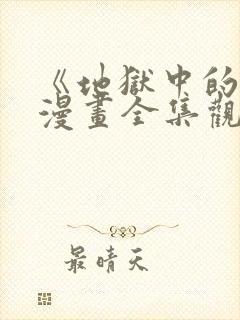 《地獄中的
漫畫全集觀
最晴天